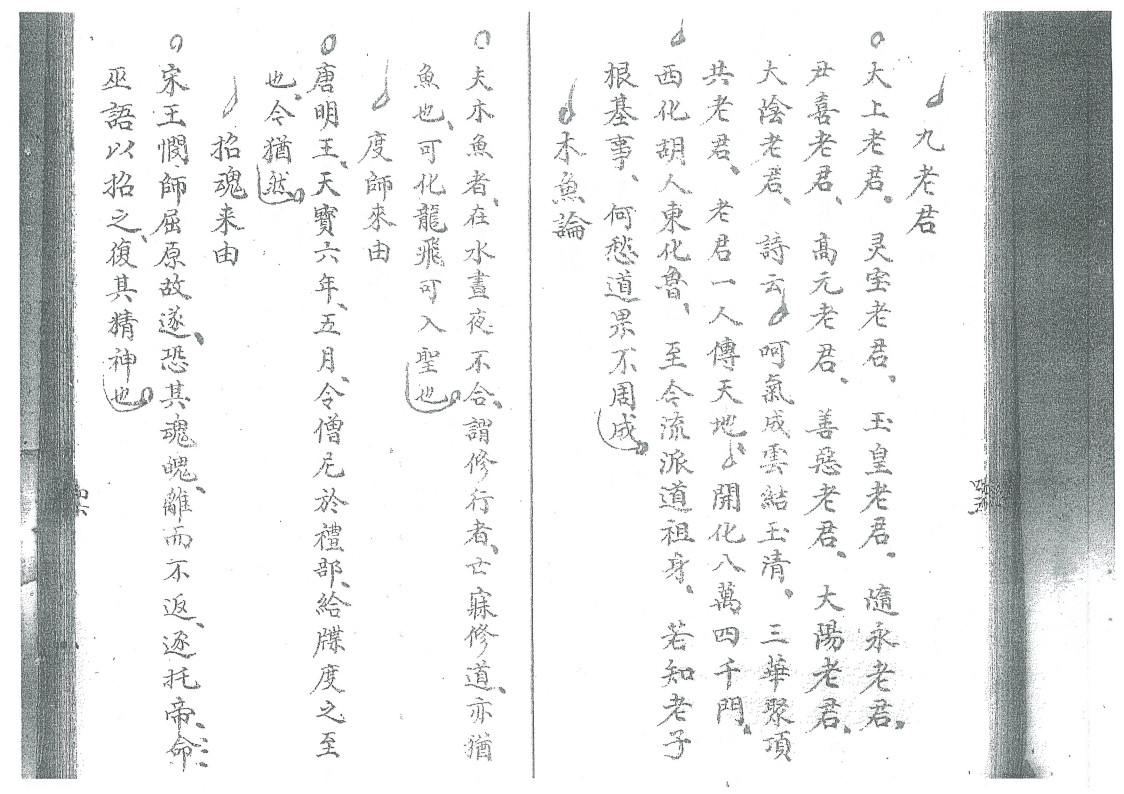 九老君
大上老君。灵宝老君、玉皇老君。隨永老君。
尹喜老君、高元老君、善惡老君、大陽老君、
大陰老君、詩云呵氣成雲結玉清。三華聚項
共老君、老君一人傳天地、開化八萬四千門、
西化胡人東化魯、至今流派道祖身、若知老子
根基事、何愁道果不周成
木魚論
夫木魚者、在水晝夜不合、謂修行者、亡寐修道、亦猶
魚也、可化龍飛可入聖也
度師來由
唐明王、天寶六年、五月、令僧尼於禮部、給牒度之至
也、令猶然
招魂来由
宋王憫師屈原故遂、恐其魂魄、離而不返、逐托帝、命
巫語以招之、復其精神也